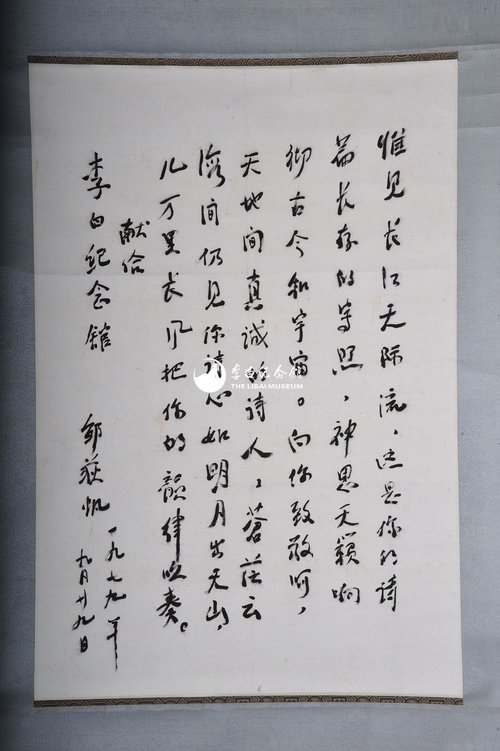 惟见长江天际流，这是你的诗
篇长存的写照，神思天籁
御古今和宇宙。向你致敬呵，
天地间真诚的诗人，苍茫云
海间仍见你诗心如明月出天山，
几万里长风把你的韵律吹奏。
献给
李白纪念馆
邹荻帆 一九七九年
九月廿九日
李白纪念馆
THE LIBAI MUSEUM